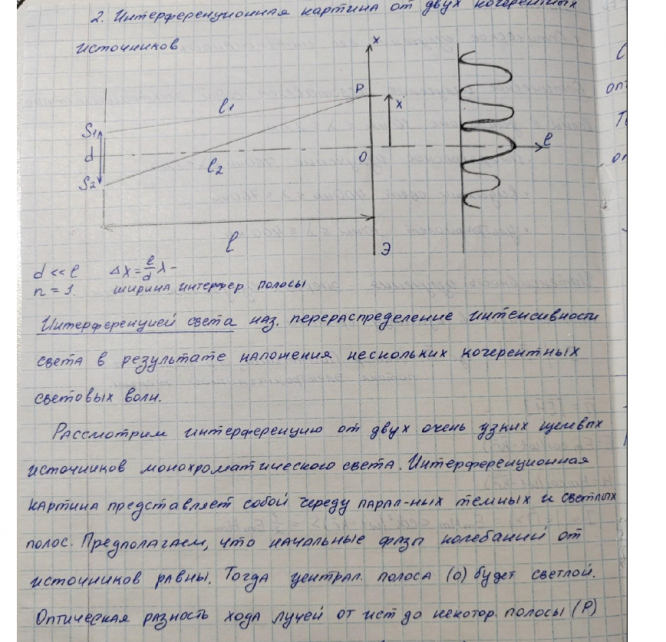 2. Интерференционная картина от двух когерентных
источников
x
P
l1
x
S1
d
S2
l2
O
l
l
Э
d << l Δx = l/d λ -
n = 1. ширина интерфер полосы
Интерференцией света наз. перераспределение интенсивности
света в результате наложения нескольких когерентных
световых волн.
Рассмотрим интерференцию от двух очень узких щелевых
источников монохроматического света. Интерференционная
картина представляет собой череду парал-ных темных и светлых
полос. Предполагаем, что начальные фазы колебаний от
источников равны. Тогда централ. полоса (о) будет светлой.
Оптическая разность хода лучей от ист до некотор. полосы (P)